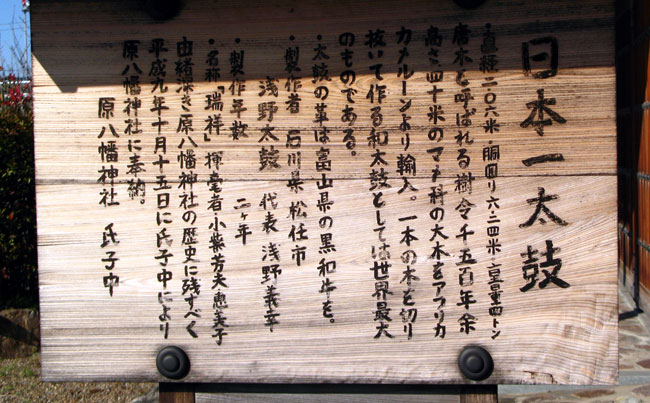 日本一太鼓
・直径二・〇六米・胴回り六・二四米・総重量四トン
唐木と呼ばれる樹令千五百年余
高さ四十米のマメ科の大木をアフリカ
カメルーンより輸入。一本の木を切り
抜いて作る和太鼓としては世界最大
のものである。
・太鼓の革は富山県の黒和牛を。
・製作者 石川県松任市
浅野太鼓 代表 浅野義幸
・製作年数 二ヶ年
・名称「瑞祥」揮毫者・小柴芳夫恵美子
由緒深き原八幡神社の歴史に残すべく
平成九年十月十五日に氏子中により
原八幡神社に奉納。
原八幡神社 氏子中